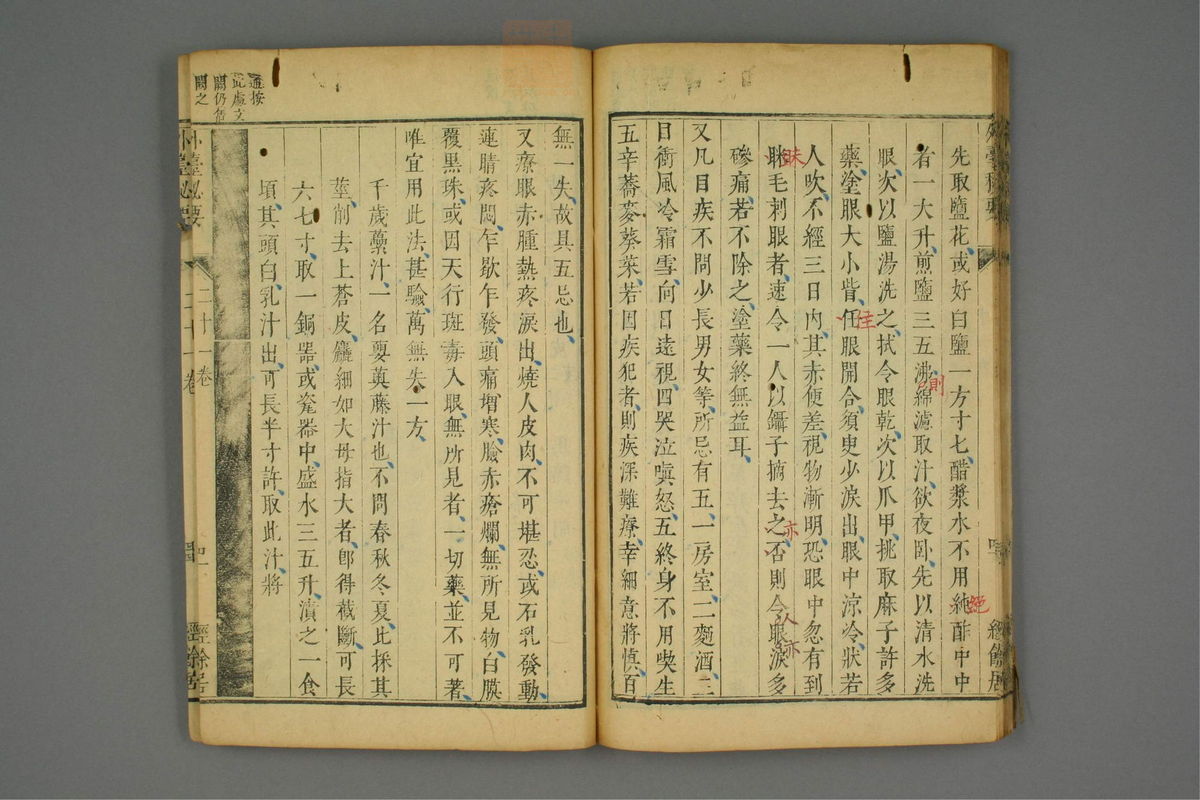 先取鹽花或好白鹽一方寸匕醋漿水不用純酢中中
者一大升煎鹽三五沸綿濾取汁欲夜卧先以清水洗
眼次以鹽湯洗之拭令眼乾次以爪甲挑取麻子許多
藥塗眼大小眥任眼開合須臾少淚出眼中涼冷狀若
人吹不經三日内其赤便差視物漸明恐眼中忽有到
睫毛刺眼者速令一人以鑷子摘去之否則令眼淚多
磣痛若不除之塗藥終無益耳
又凡目疾不問少長男女等所忌有五一房室二麪酒三
目衝風冷霜雪向日遠視四哭泣嗔怒五終身不用喫生
五辛蕎麥葵菜若因疾犯者則疾深難療幸細意將慎百
無一失故具五忌也
又療眼赤腫熱疼淚出燒人皮肉不可堪忍或石乳發動
連睛疼悶乍歇乍發頭痛增寒臉赤瘡爛無所見物白膜
覆黑珠或因天行斑毒入眼無所見者一切藥並不可著
唯宜用此法甚驗萬無失一方
千歲蘽汁一名蘡薁藤汁也不問春秋冬夏比採其
莖削去上蒼皮麤細如大母指大者即得截斷可長
六七寸取一銅器或瓷器中盛水三五升漬之一食
頃其頭白乳汁出可長半寸許取此汁將
外臺秘要
二十一卷
經餘居